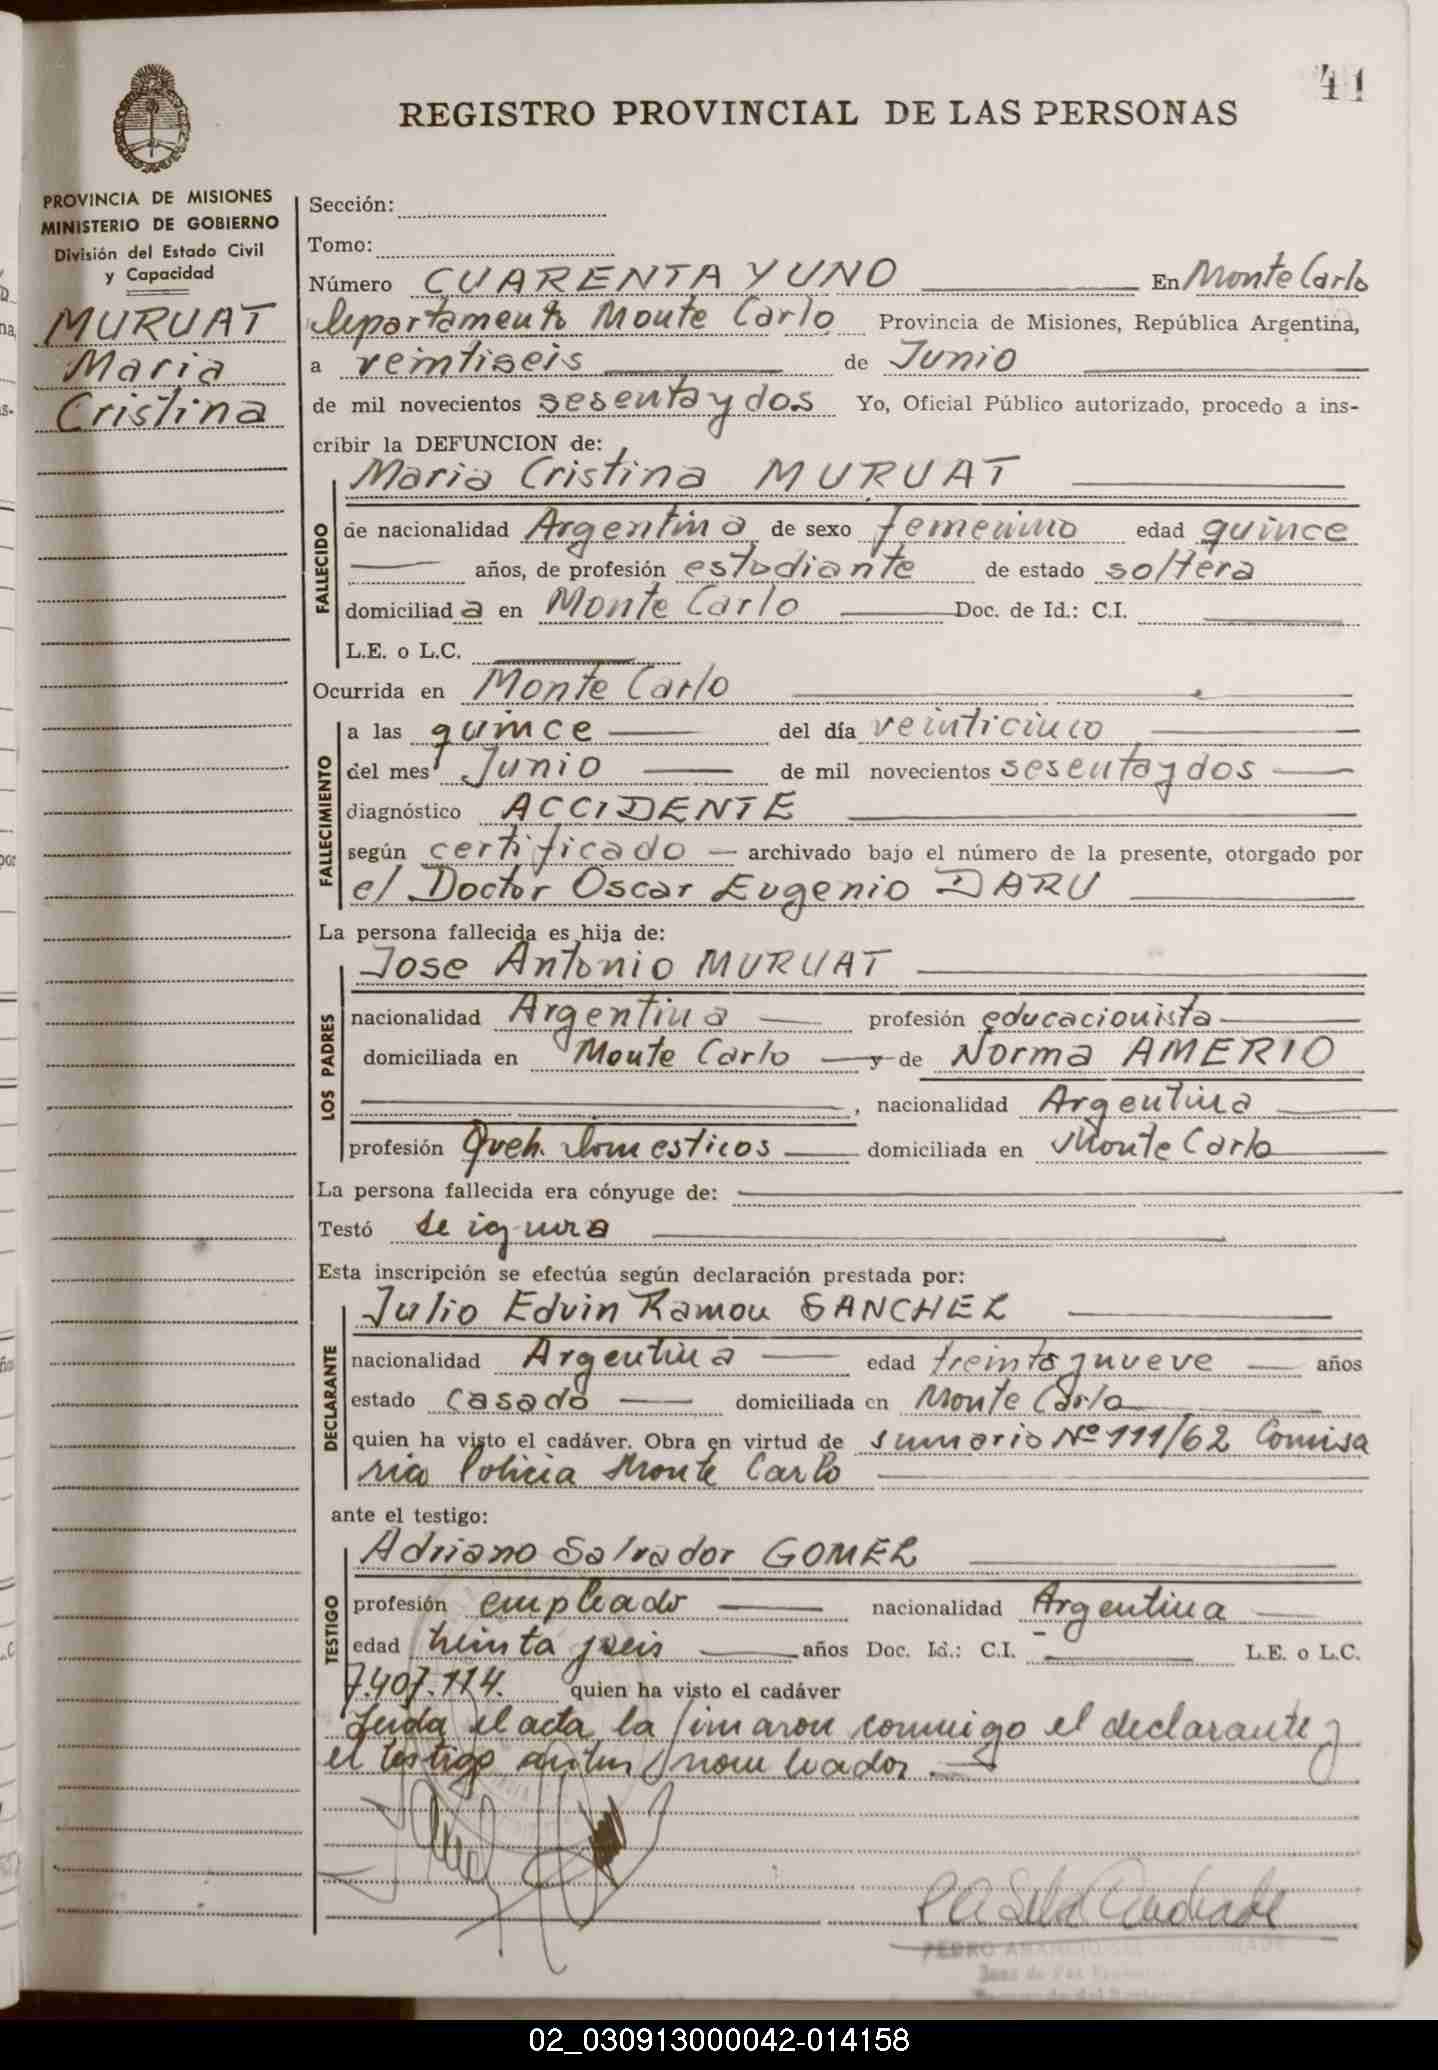 41
REGISTRO PROVINCIAL DE LAS PERSONAS
PROVINCIA DE MISIONES
MINISTERIO DE GOBIERNO
División del Estado Civil
y Capacidad
MURUAT
Maria
Cristina
Sección:
Tomo:
Número CUARENTA Y UNO En Monte Carlo
Departamento Monte Carlo Provincia de Misiones, República Argentina,
a veintiseis de Junio
de mil novecientos sesenta y dos Yo, Oficial Público autorizado, procedo a ins-
cribir la DEFUNCION de:
Maria Cristina MURUAT
FALLECIDO
de nacionalidad Argentina de sexo femenino edad quince
años, de profesión estudiante de estado soltera
domiciliad a en Monte Carlo Doc. de Id.: C.I.
L.E. o L.C.
Ocurrida en Monte Carlo
FALLECIMIENTO
a las quince del día veinticinco
del mes Junio de mil novecientos sesenta y dos
diagnóstico ACCIDENTE
según certificado archivado bajo el número de la presente, otorgado por
el Doctor Oscar Eugenio DARU
La persona fallecida es hija de:
LOS PADRES
Jose Antonio MURUAT
nacionalidad Argentina profesión educacionista
domiciliada en Monte Carlo y de Norma AMERIO
, nacionalidad Argentina
profesión Queh. Domesticos domiciliada en Monte Carlo
La persona fallecida era cónyuge de:
Testó se ignora
Esta inscripción se efectúa según declaración prestada por:
DECLARANTE
Julio Edvin Ramon SANCHEZ
nacionalidad Argentina edad treinta y nueve años
estado casado domiciliada en Monte Carlo
quien ha visto el cadáver. Obra en virtud de sumario Nº 111/62 Comisa
ria Policia Monte Carlo
ante el testigo:
TESTIGO
Adriano Salvador GOMEZ
profesión empleado nacionalidad Argentina
edad treinta y seis años Doc. Id.: C.I. L.E. o L.C.
7.407.114. quien ha visto el cadáver
Leida el acta la firmaron conmigo el declarante y
el testigo nombrados.
02_030913000042-014158